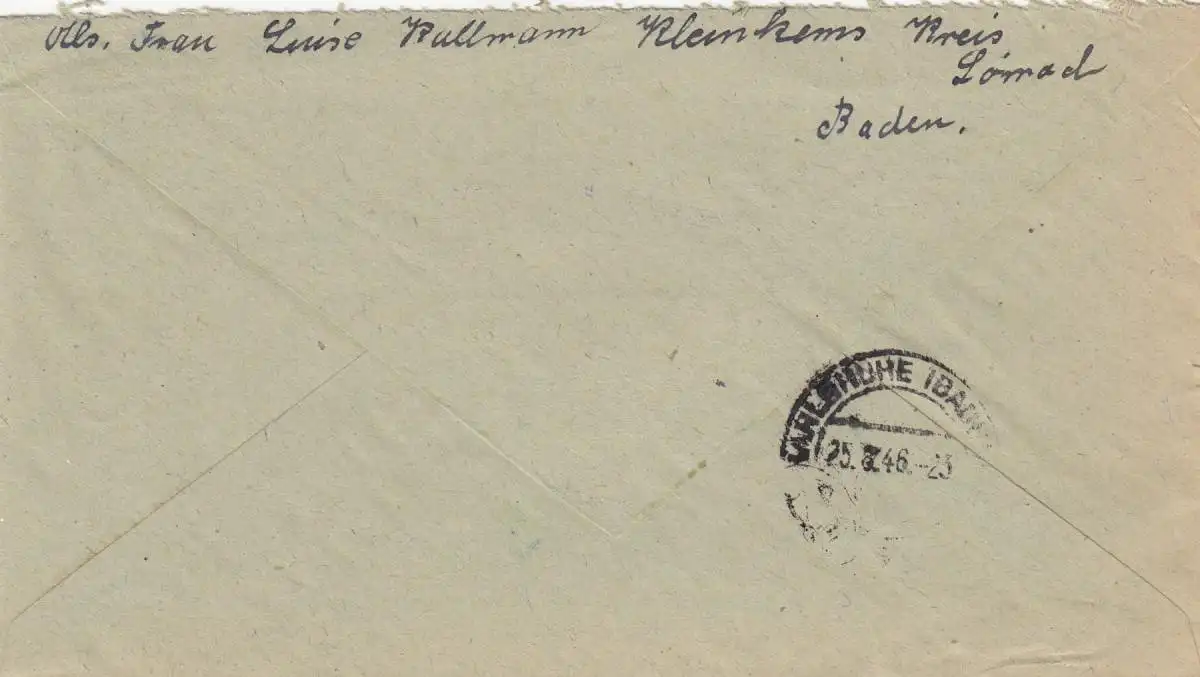 Abs. Frau Luise Kullmann Kleinkems Kreis
Lörrach
Baden.
KARLSRUHE (BADEN)
25.8.46.-23